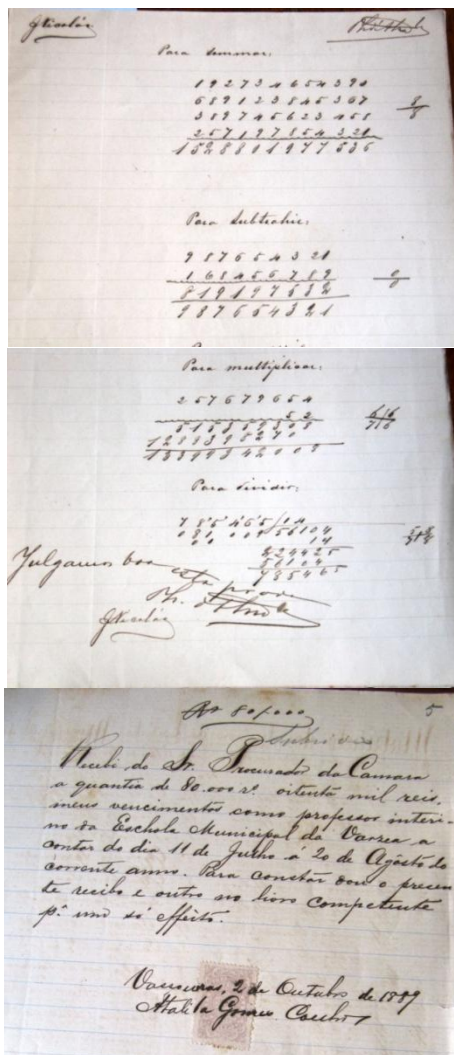 Para sommar.
192734654390
689123845367
389745623458
257197854321
1528801977536
8
8
Para subtrahir.
987654321
168456789
819197532
987654321
0
0
Para multiplicar.
257679654
52
515359308
1288398270
13399342008
Para dividir.
785465/14
56104
14
224425
56104
785465
Julgamos boa
esta prova
Rs 80$000
5
Recebi do Sr. Procurador da Camara
a quantia de 80.000 rs. oitenta mil reis,
meus vencimentos como professor interi-
no da Eschola Municipal da Varzea a
contar do dia 11 de Julho á 20 de Agosto do
corrente anno. Para constar dou o presen
te recibo e outro no livro competente
pª um só effeito.
Vassouras, 2 de Outubro de 1889
Atalila Gomes Coelho